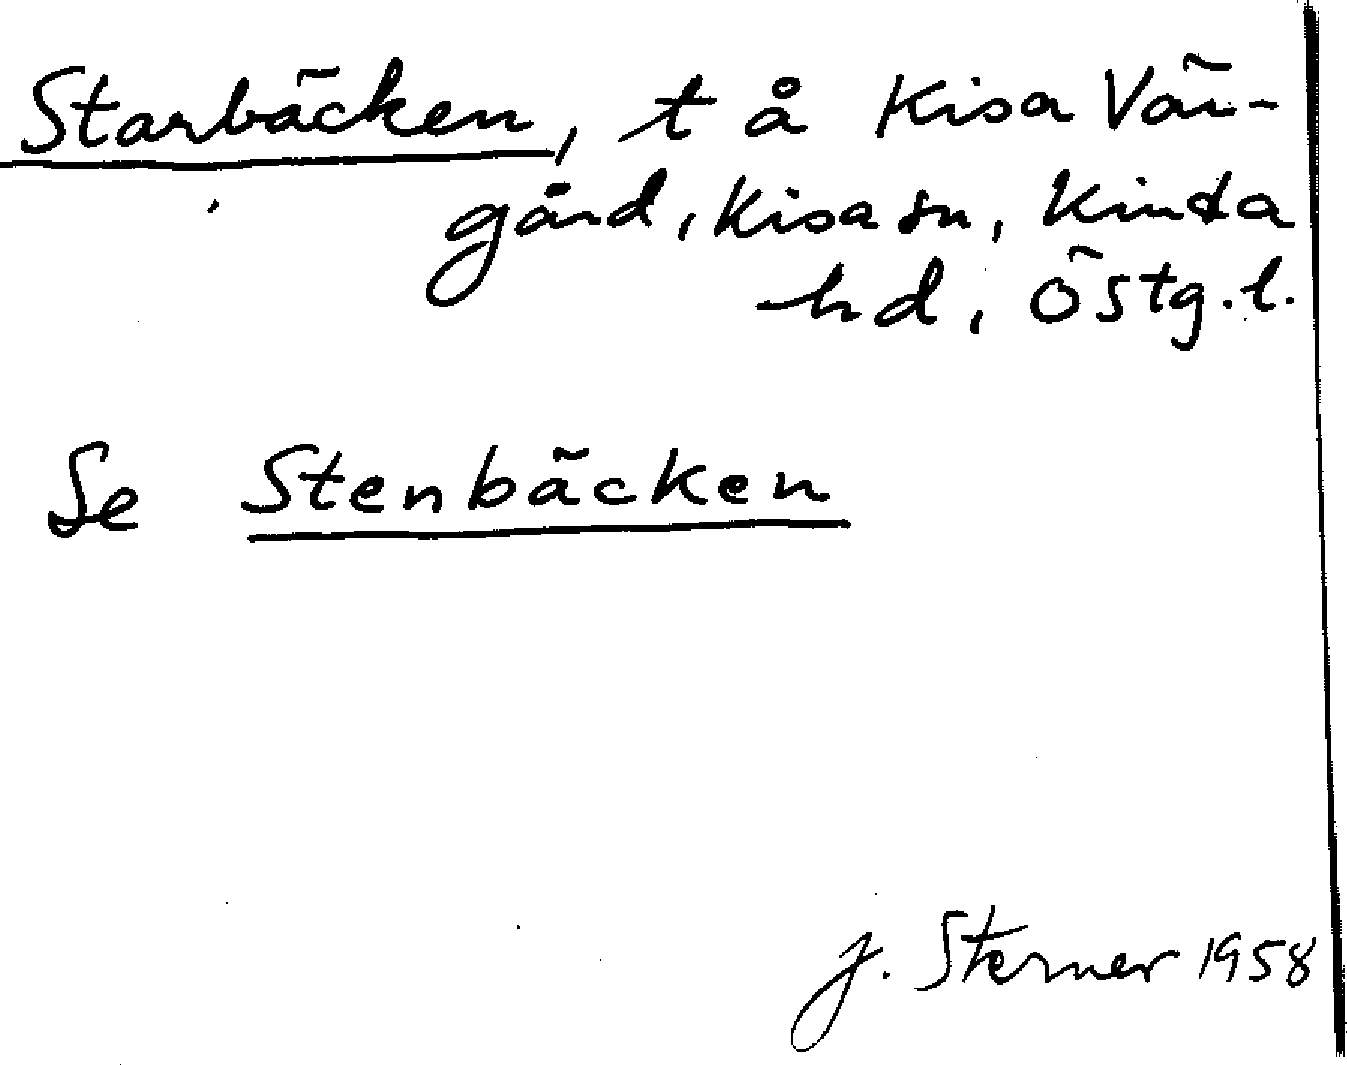 Starbäcken, t å Kisa Vär-
gård, Kisa sn, Kinda
hd, Östg.l.
Se Stenbäcken
J. Sterner 1958